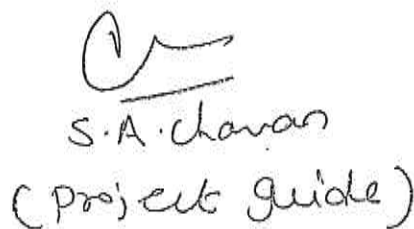 S.A. Chavan
(Project Guide)